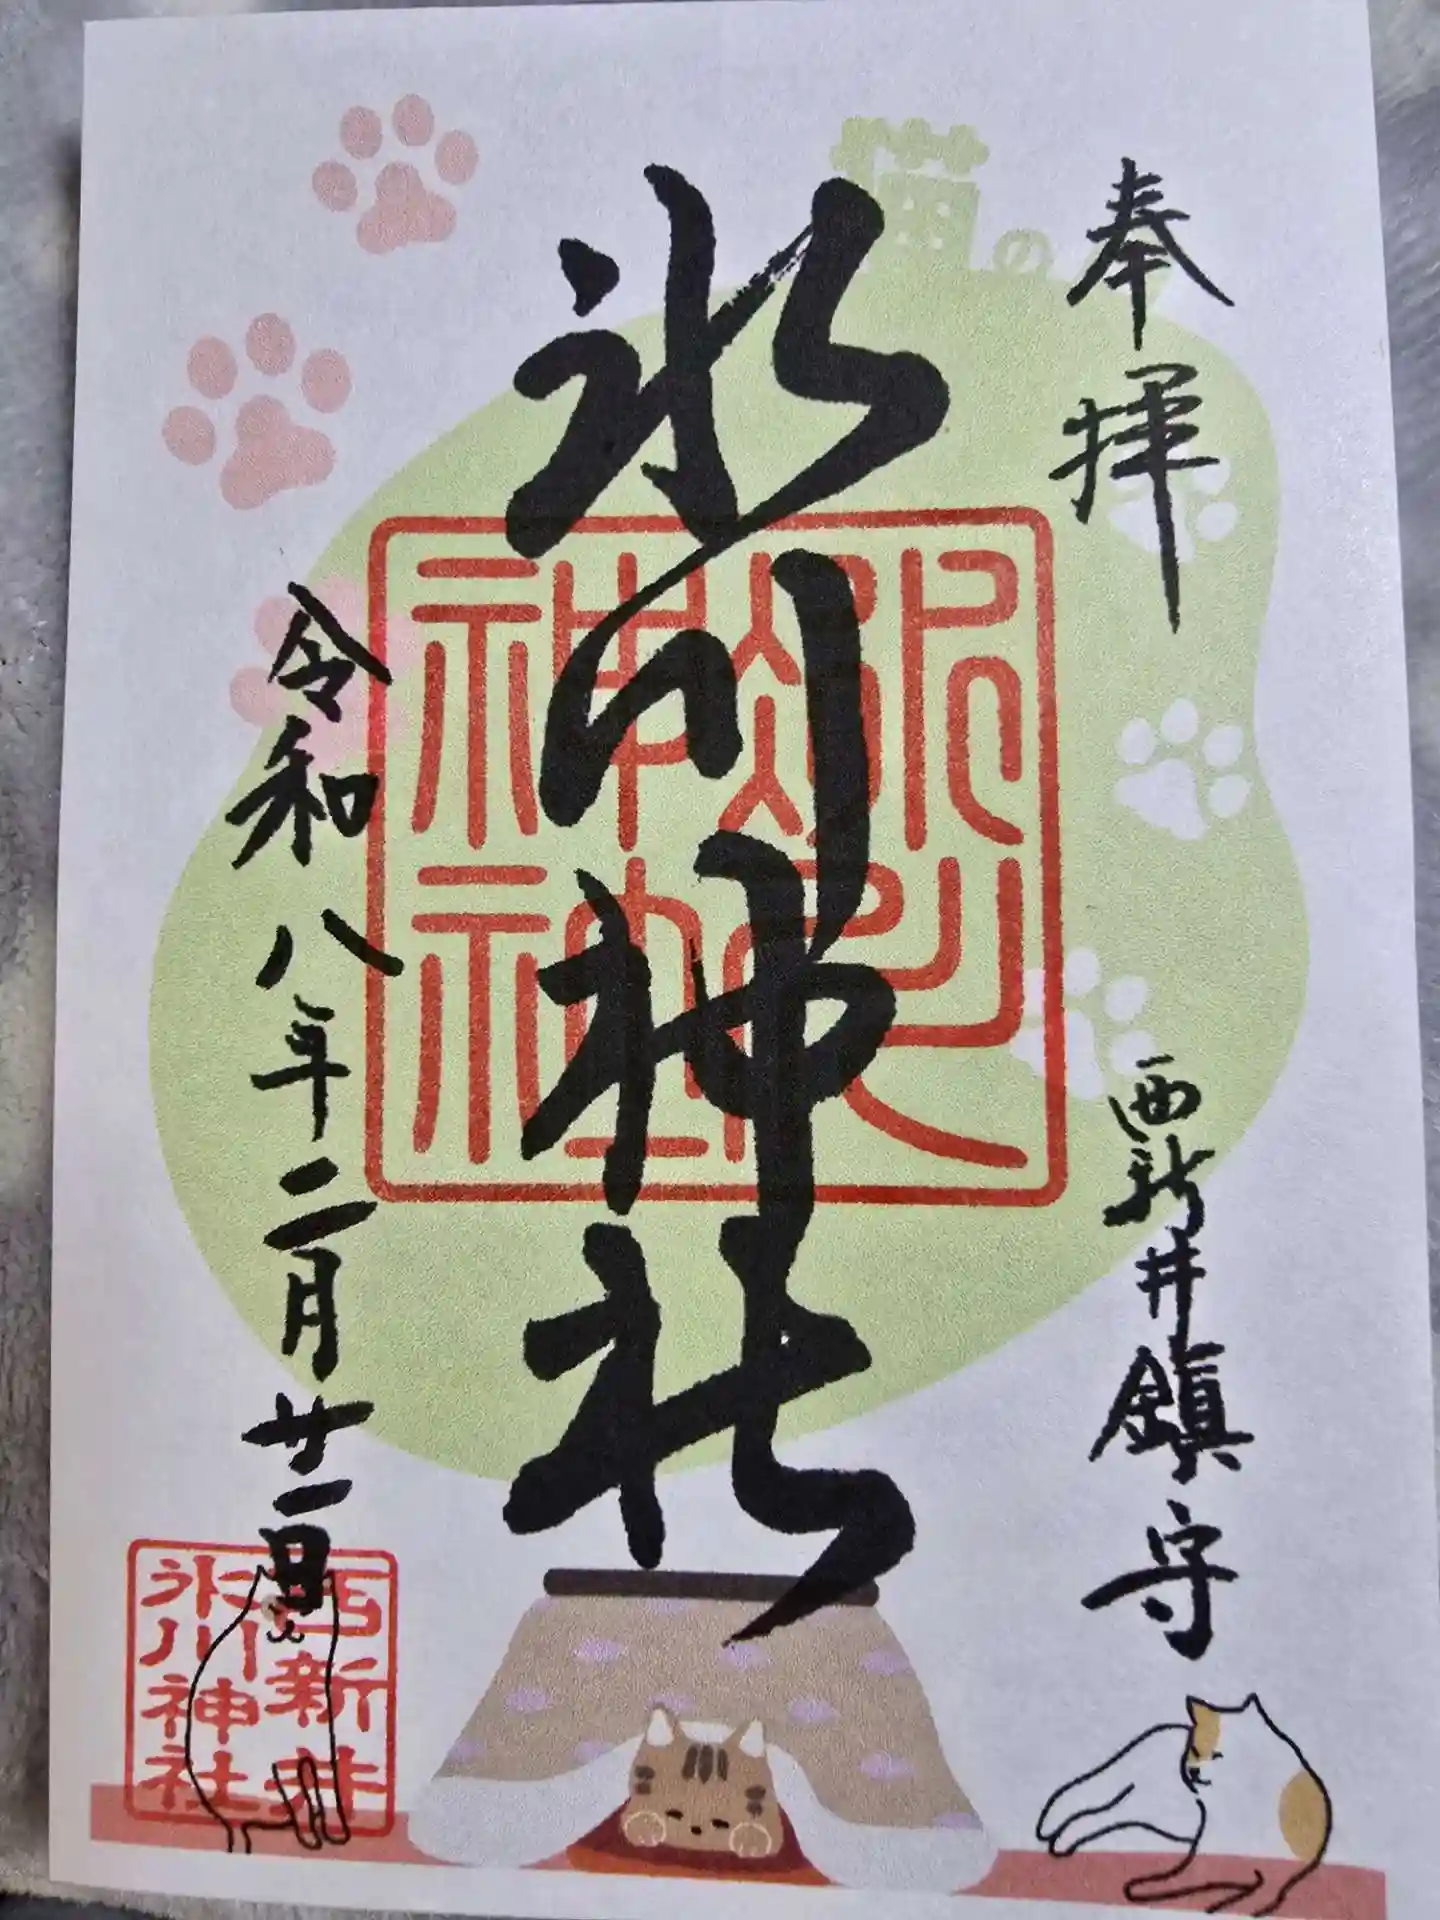 奉拝
西新井鎮守
氷川神社
令和八年二月廿一日
西新井
氷川神社